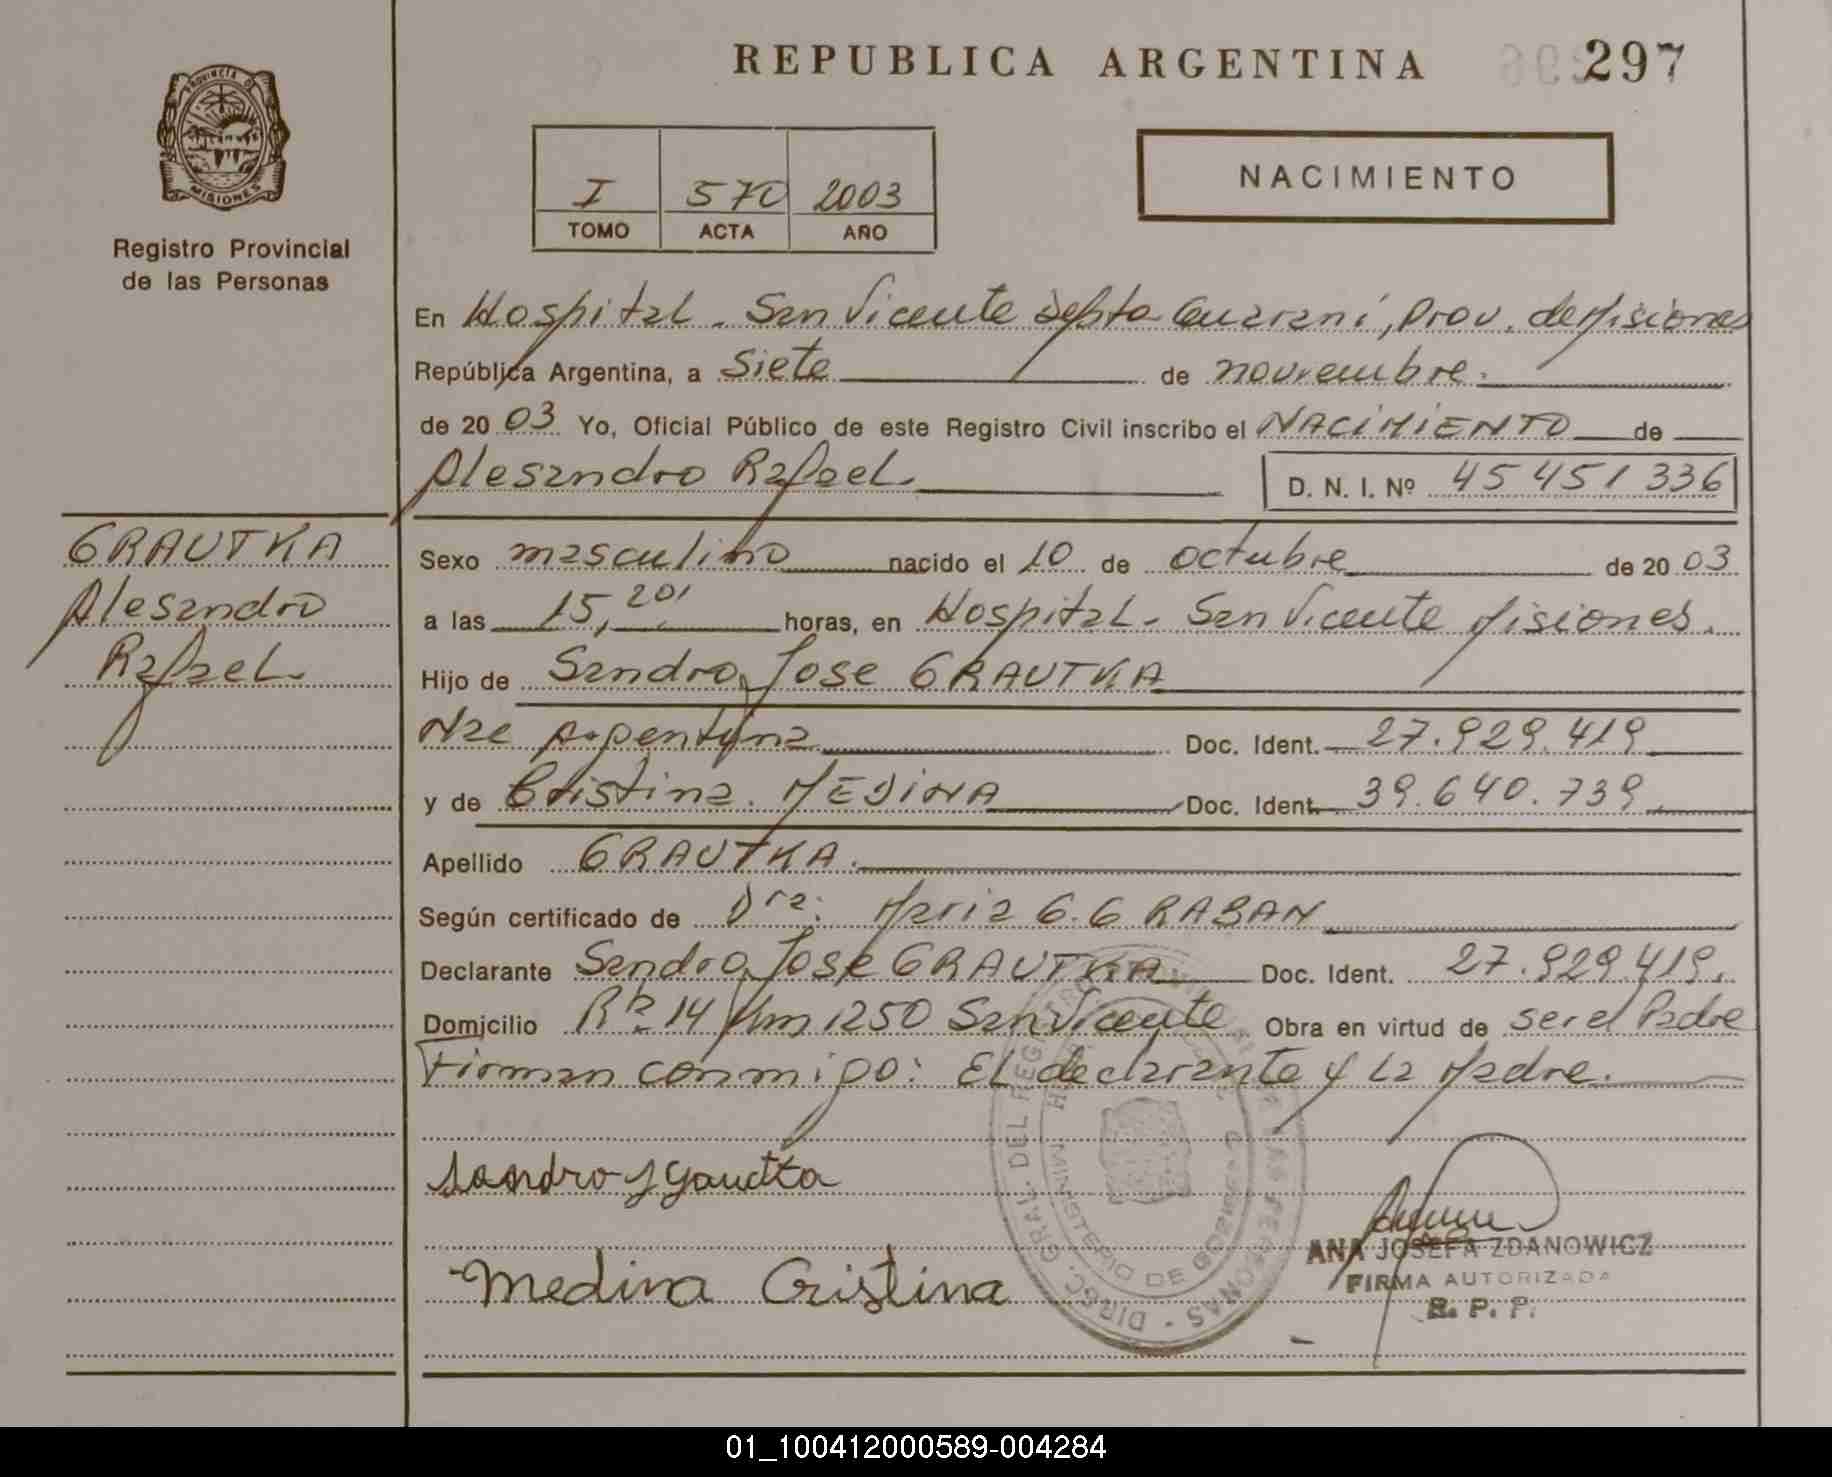 REPUBLICA ARGENTINA 297
PROVINCIA D
MISIONES
Registro Provincial
de las Personas
I 570 2003
TOMO ACTA AÑO
NACIMIENTO
En Hospital. San Vicente Depto Guarani, Prov. de Misiones
República Argentina, a Siete de noviembre.
de 20 03 Yo, Oficial Público de este Registro Civil inscribo el NACIMIENTO de
Alesandro Rafael. D. N. I. Nº 45 451 336
GRAUTKA
Alesandro
Rafael.
Sexo masculino nacido el 10 de octubre de 20 03
a las 15,20' horas, en Hospital. San Vicente Misiones.
Hijo de Sandro Jose GRAUTKA
Nac Argentina Doc. Ident. 27.929.419
y de Cristina. MEDINA Doc. Ident. 39.640.739
Apellido GRAUTKA.
Según certificado de Dra: Maria G. G RABAN
Declarante Sandro Jose GRAUTKA Doc. Ident. 27.929.419.
Domicilio 14 Km 1250 San Vicente Obra en virtud de ser el Padre
Firman conmigo: El declarante y La Madre.
Sandro J
Medina Cristina
DIREC. GRAL. DEL REGISTRO DE LAS PERSONAS
MINISTERIO DE GOBIERNO
ANA JOSEFA ZDANOWICZ
FIRMA AUTORIZADA
R. P. P.
01_100412000589-004284